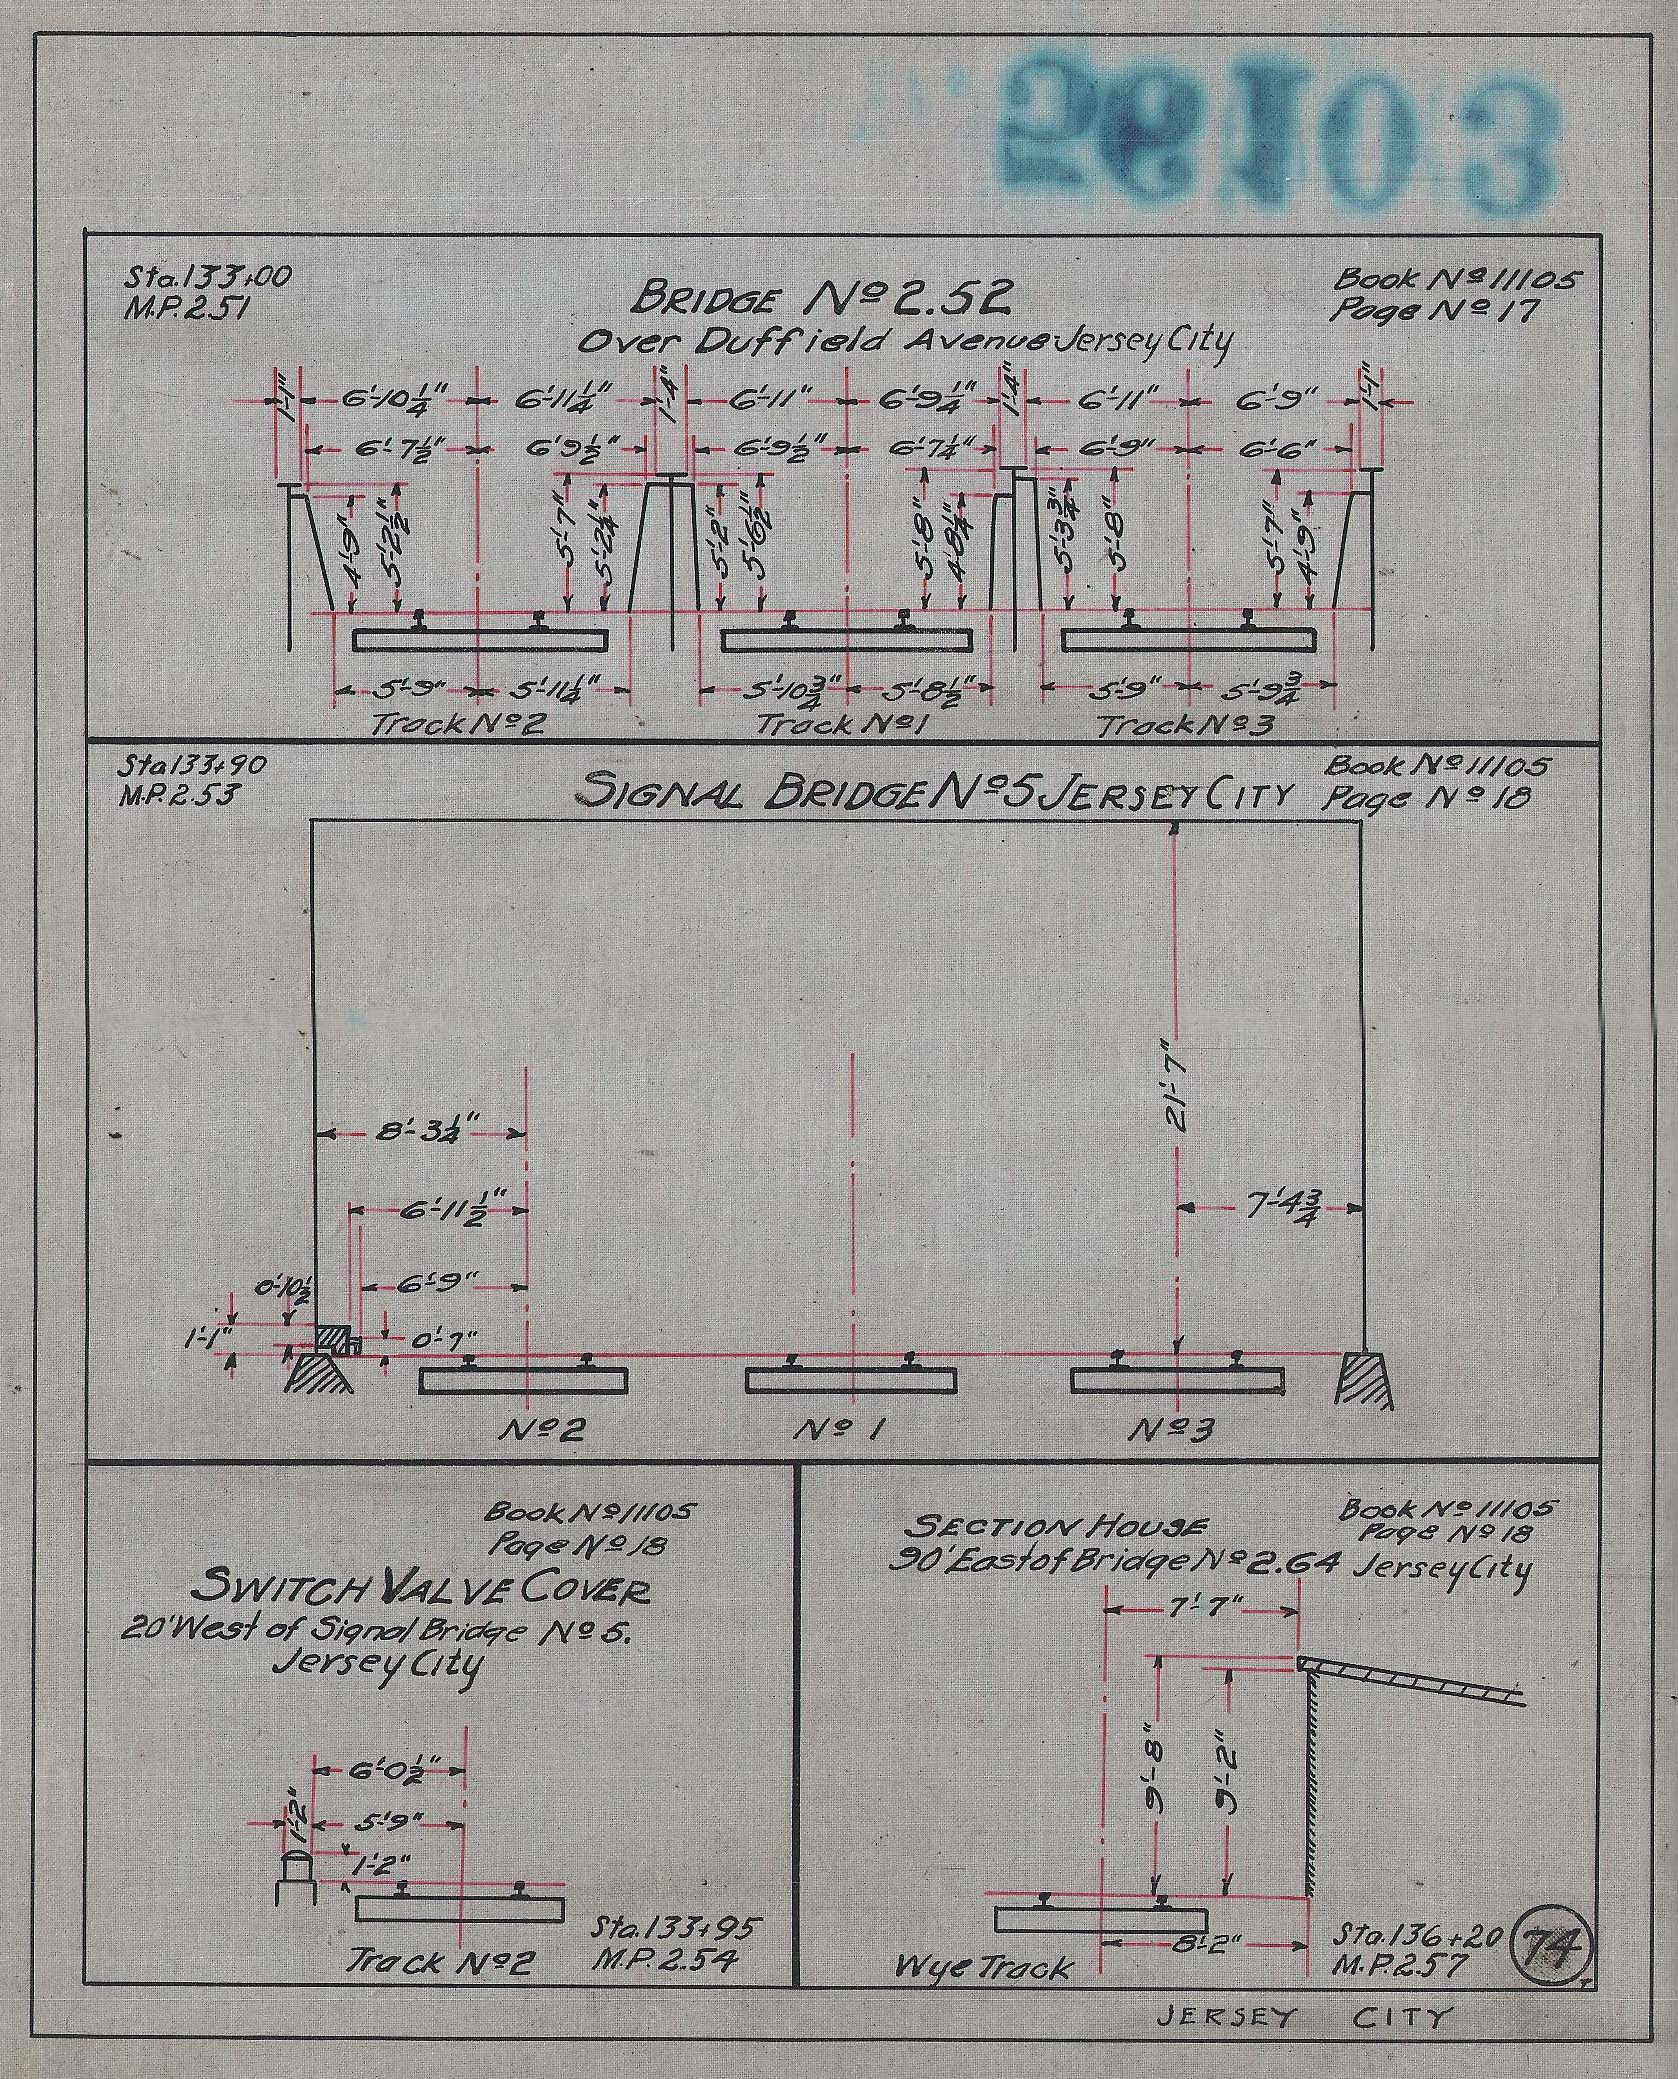 29103
Sta. 133+00
M.P. 2.51
BRIDGE Nº 2.52
Over Duffield Avenue Jersey City
Book Nº 11105
Page Nº 17
1'-1" 6'-10¼" 6'-11¼" 1'-4" 6'-11" 6'-9¼" 1'-4" 6'-11" 6'-9" 1'-1"
6'-7½" 6'-9½" 6'-9½" 6'-7¼" 6'-9" 6'-6"
4'-9" 5'-2½" 5'-7" 5'-2¼" 5'-2" 5'-6½" 5'-8" 4'-8¼" 5'-3¾" 5'-8" 5'-7" 4'-9"
5'-9" 5'-11¼" 5'-10¾" 5'-8½" 5'-9" 5'-9¾
Track Nº 2 Track Nº 1 Track Nº 3
Sta 133+90
M.P. 2.53
SIGNAL BRIDGE Nº 5 JERSEY CITY
Book Nº 11105
Page Nº 18
21'-7"
8'-3¼"
6'-11½"
7'-4¾
6'-9"
0'-10½
1'-1"
0'-7"
Nº 2 Nº 1 Nº 3
Book Nº 11105
Page Nº 18
SWITCH VALVE COVER
20' West of Signal Bridge Nº 5.
Jersey City
6'-0½"
1'-2" 5'-9"
1'-2"
Track Nº 2
Sta. 133+95
M.P. 2.54
SECTION HOUSE
90' East of Bridge Nº 2.64 Jersey City
Book Nº 11105
Page Nº 18
7'-7"
9'-8" 9'-2"
8'-2"
Wye Track
Sta. 136+20
M.P. 2.57
74
JERSEY CITY